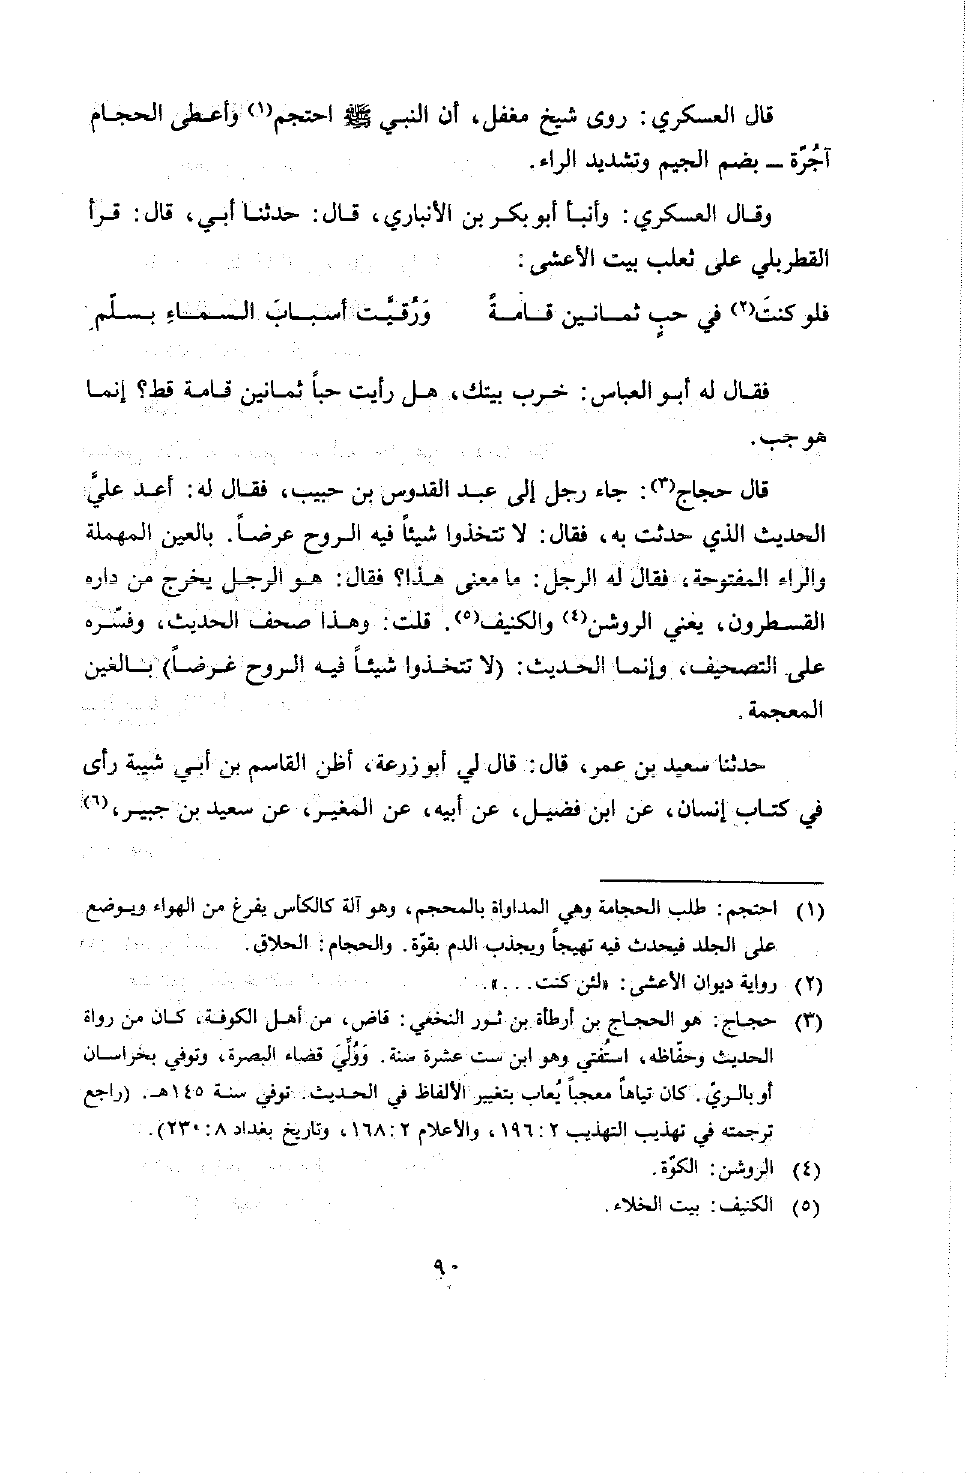 قال العسكري: روى شيخ مغفل، أن النبي ﷺ احتجم(١) وأعطى الحجام
آجُرّة ــ بضم الجيم وتشديد الراء.
وقال العسكري: وأنبأ أبو بكر بن الأنباري، قال: حدثنا أبي، قال: قرأ
القطربلي على ثعلب بيت الأعشى:
فلو كنتَ(٢) في حبٍ ثمانين قامةً وَرُقيَّت أسبابَ السماءِ بسلّم
فقال له أبو العباس: خرب بيتك، هل رأيت حباً ثمانين قامة قط؟ إنما
هو جب.
قال حجاج(٣): جاء رجل إلى عبد القدوس بن حبيب، فقال له: أعد عليَّ
الحديث الذي حدثت به، فقال: لا تتخذوا شيئاً فيه الروح عرضاً. بالعين المهملة
والراء المفتوحة، فقال له الرجل: ما معنى هذا؟ فقال: هو الرجل يخرج من داره
القسطرون، يعني الروشن(٤) والكنيف(٥). قلت: وهذا صحف الحديث، وفسّره
على التصحيف، وإنما الحديث: (لا تتخذوا شيئاً فيه الروح غرضاً) بالغين
المعجمة.
حدثنا سعيد بن عمر، قال: قال لي أبو زرعة، أظن القاسم بن أبي شيبة رأى
في كتاب إنسان، عن ابن فضيل، عن أبيه، عن المغير، عن سعيد بن جبير،(٦)
(١) احتجم: طلب الحجامة وهي المداواة بالمحجم، وهو آلة كالكأس يفرغ من الهواء ويوضع
على الجلد فيحدث فيه تهيجاً ويجذب الدم بقوّة. والحجام: الحلاق.
(٢) رواية ديوان الأعشى: «لئن كنت...».
(٣) حجاج: هو الحجاج بن أرطأة بن ثور النخعي: قاض، من أهل الكوفة، كان من رواة
الحديث وحفّاظه، استُفتي وهو ابن ست عشرة سنة. وَوُلِّيَ قضاء البصرة، وتوفي بخراسان
أو بالريّ. كان تياهاً معجباً يُعاب بتغيير الألفاظ في الحديث. توفي سنة ١٤٥هـ. (راجع
ترجمته في تهذيب التهذيب ٢: ١٩٦، والأعلام ٢: ١٦٨، وتاريخ بغداد ٨: ٢٣٠).
(٤) الروشن: الكوّة.
(٥) الكنيف: بيت الخلاء.
٩٠